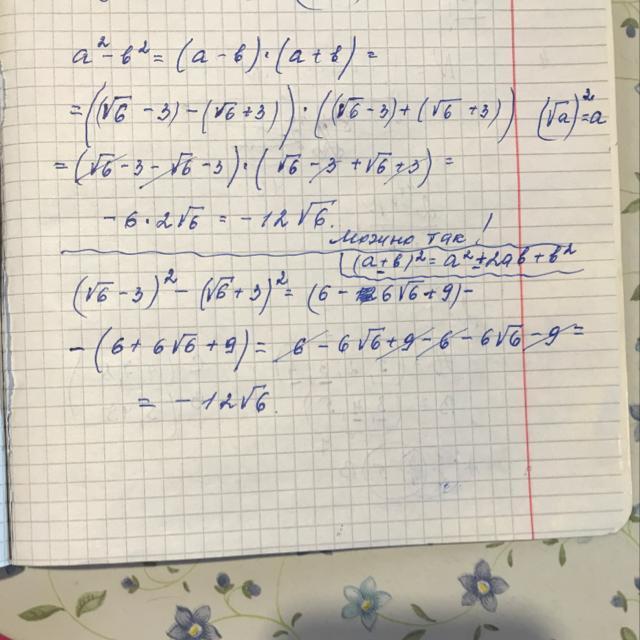 a² - b² = (a - b) · (a + b) =
= ((√6 - 3) - (√6 + 3)) · ((√6 - 3) + (√6 + 3)) (√a)² = a
= (√6 - 3 - √6 - 3) · (√6 - 3 + √6 + 3) =
- 6 · 2√6 = - 12√6.
Можно так!
(a ± b)² = a² ± 2ab + b²
(√6 - 3)² - (√6 + 3)² = (6 - 6√6 + 9) -
- (6 + 6√6 + 9) = 6 - 6√6 + 9 - 6 - 6√6 - 9 =
= - 12√6.